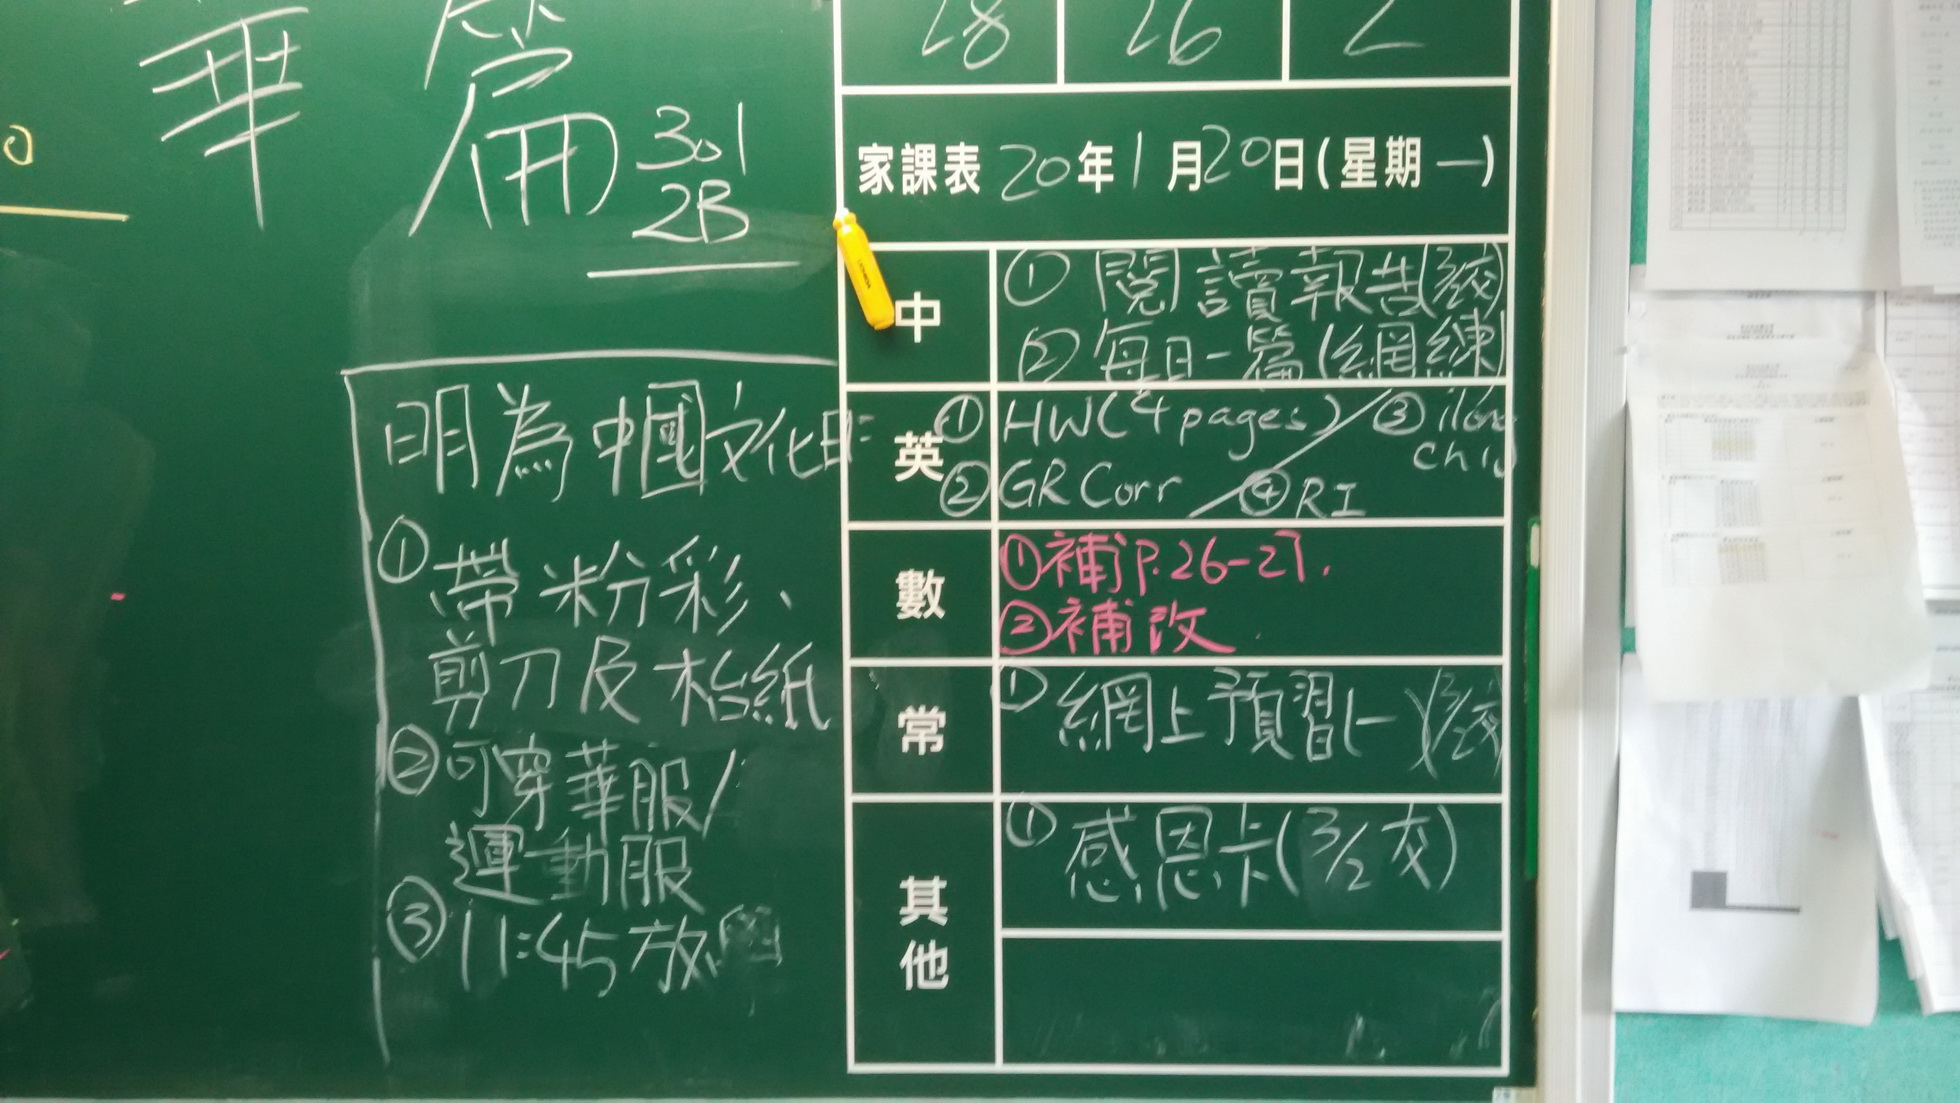 28 26 2
華 篇
301
2B
家課表 20年1月20日(星期一)
中
① 閱讀報告(3/2交)
② 每日一篇(網練)
英
① HW(4 pages) / ③
② GR Corr / ④ RI
數
① 補P.26-27.
② 補改
常
① 網上預習(一)(3/2交)
其他
① 感恩卡(3/2交)
明為中國文化日:
① 帶粉彩、
剪刀及枱紙
② 可穿華服/
運動服
③ 11:45放